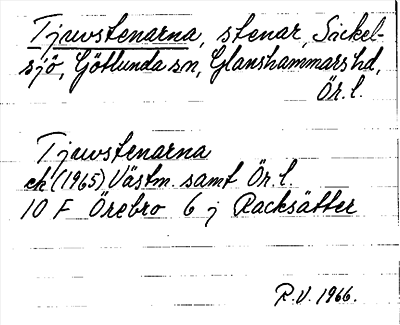 Tjuvstenarna, stenar, Sickel-
sjö, Götlunda sn, Glanshammars hd,
Ör. l.
Tjuvstenarna
ek (1965) Västm. samt Ör. l.
10 F Örebro 6 j Racksätter
R.V. 1966.